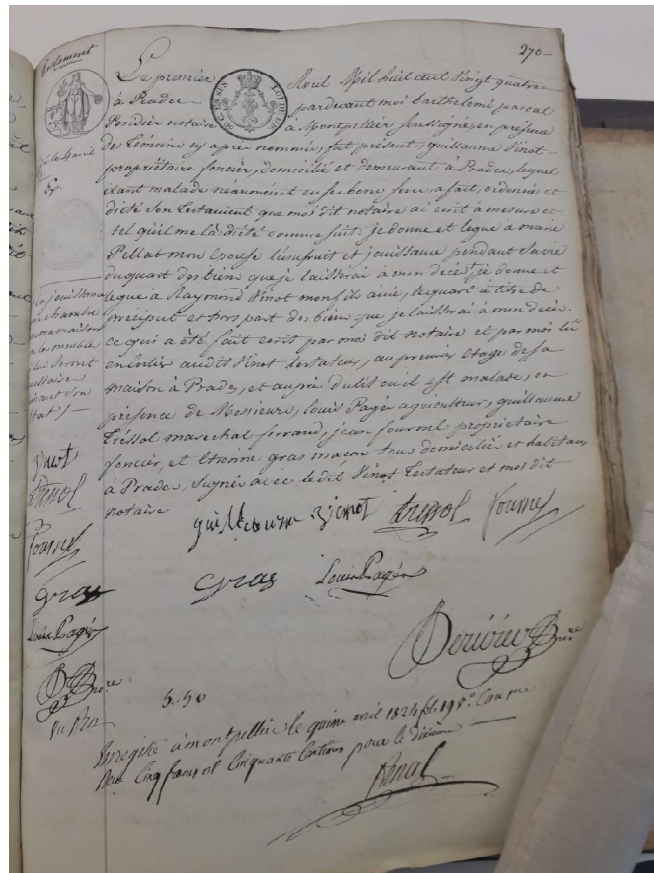 270
testament
Le premier Avril Mil huit cent vingt quatre
à Prades pardevant moi barthelemi pascal
notaire à Montpellier soussigné, en présence
de témoins cy après nommés, fut présent, guillaume Vinot
propriétaire foncier, domicilié et demeurant à Prades, lequel
étant malade néanmoint en ses bons sens, a fait, ordonné et
dicté Son Testament que moi dit notaire ai écrit à mesure et
tel qu'il me l'a dicté comme suit: je donne et legue à marie
Pellat mon epouse l'usufruit et jouissance pendant sa vie
du quart des biens que je laissrai à mon décès, je donne et
legue à Raymond Vinot mon fils ainé, le quart à titre de
préciput et hors part des biens que je laissrai à mon décès.
ce qui a été fait écrit par moi dit notaire et par moi lû
en entier audit Vinot testateur, au premier etage de sa
maison à Prades, et auprès du lit ou il est malade, en
présence de Messieurs, Louis Pagès agriculteur, guillaume
Tressol marechal ferrand, jean fournel propriétaire
foncier, et Etienne gras maçon tous domiciliés et habitans
à Prades, signés avec le dit Vinot Testateur et moi dit
notaire
la jouissance
chambre
ma maison
meubles
lui seront
Vinot
Tressol
fournel
gras
Louis Pagès
guilleaume Vinot tressol fournel
gras Louis Pagès
5-50
Enregistré à montpellier le quinze avril 1824 fol. 198
Reçu cinq francs et cinquante centimes pour le dixieme